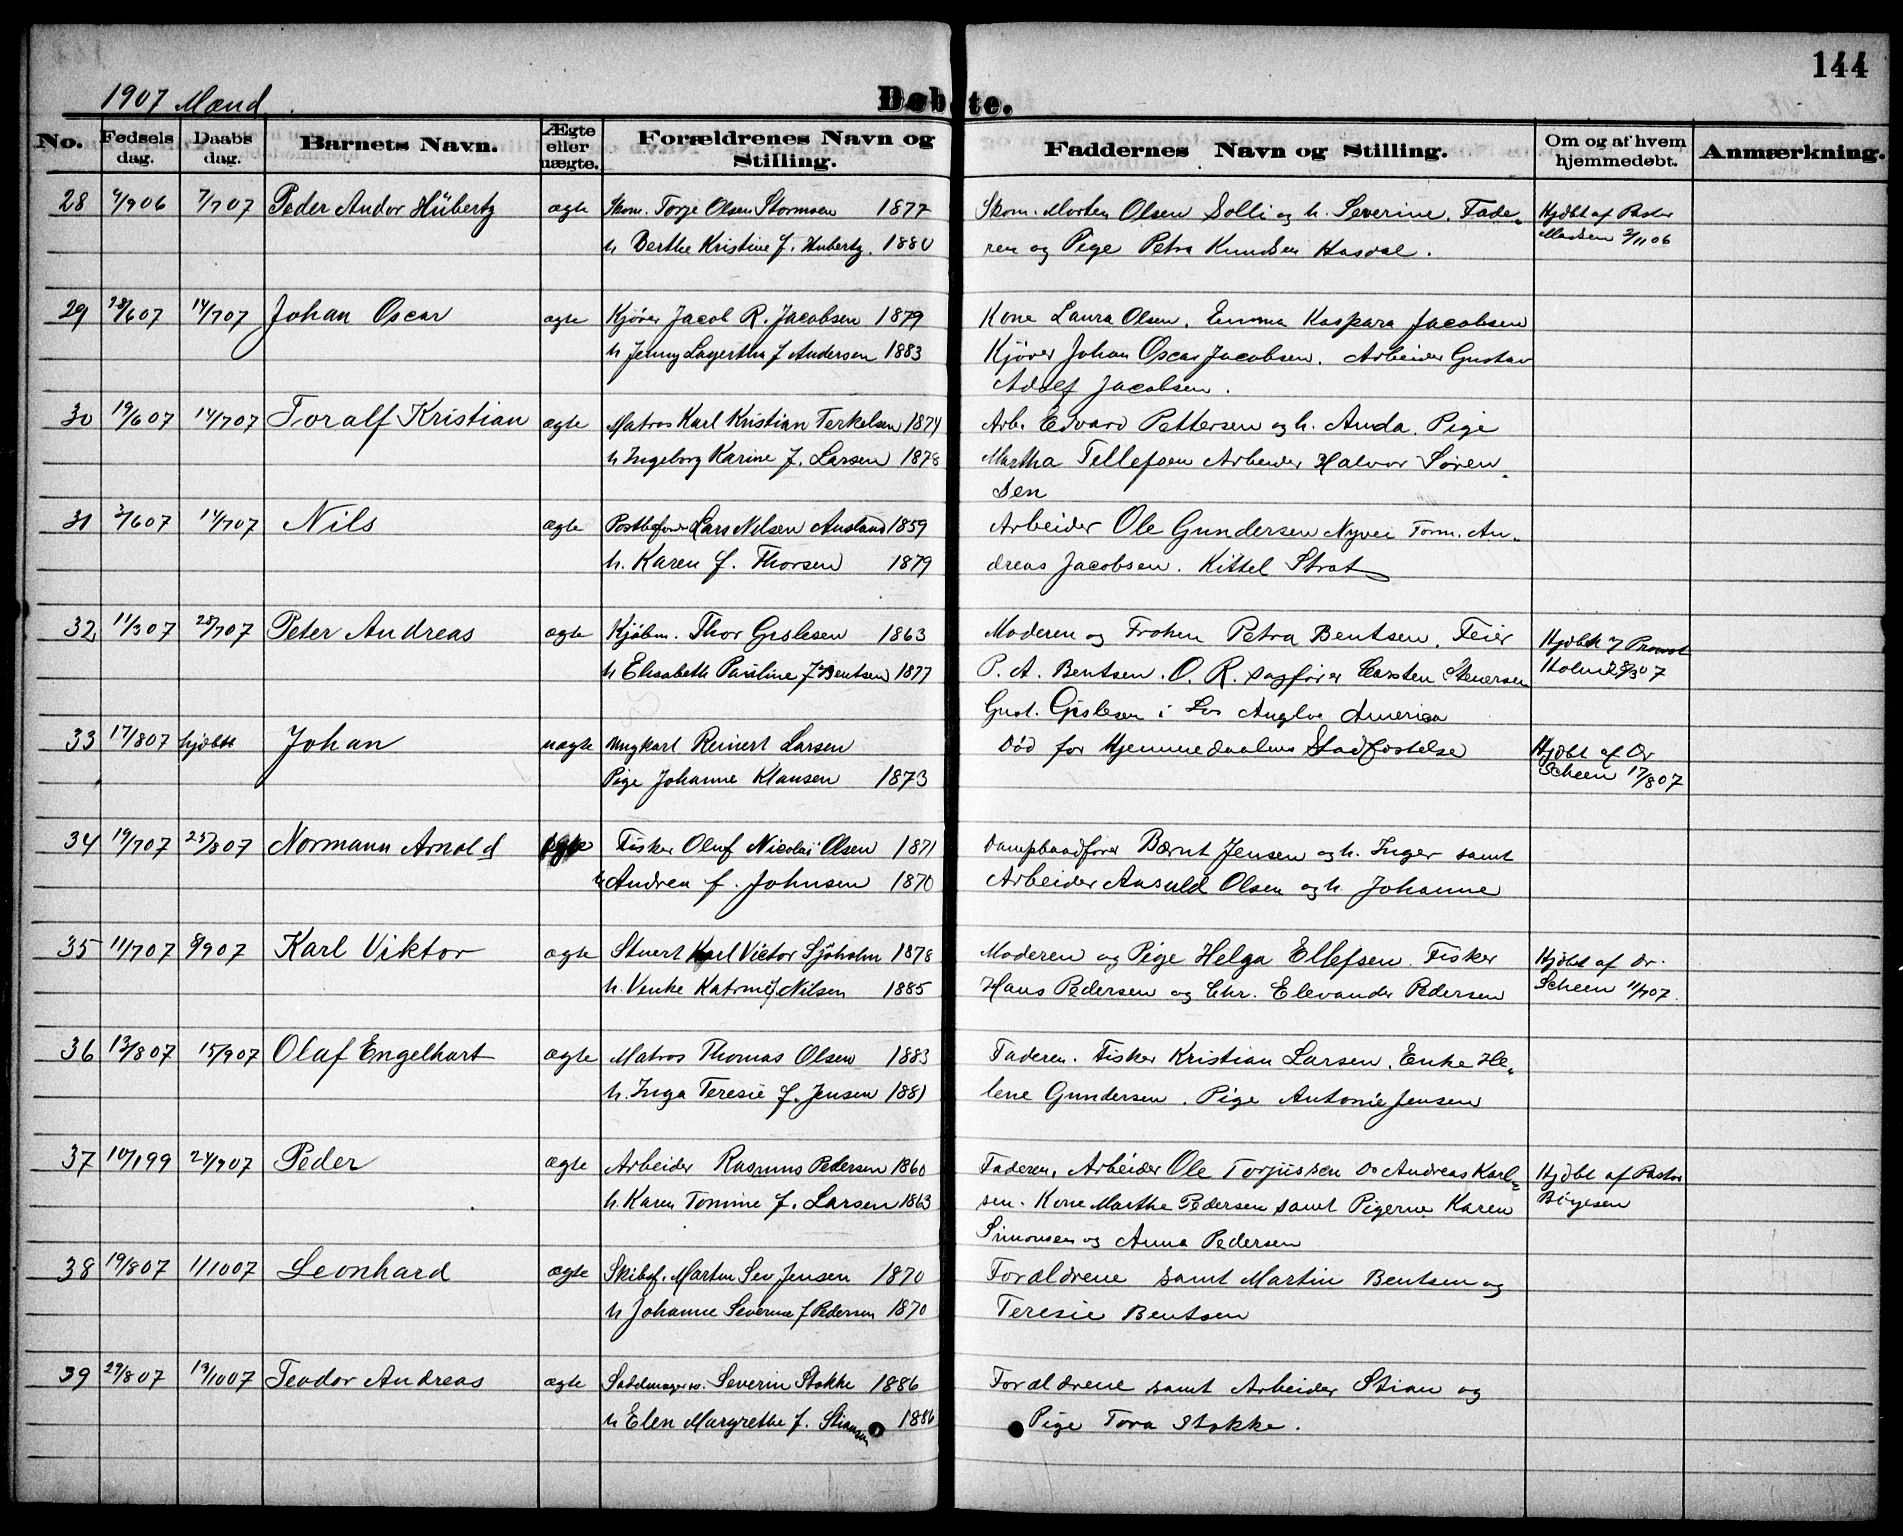 144
1907 Mænd.
Døbte.
No. Fødsels dag. Daabs dag. Barnets Navn. Ægte eller uægte. Forældrenes Navn og Stilling. Faddernes Navn og Stilling. Om og af hvem hjemmedøbt. Anmærkning.
28 7/707 Peder Andor Hübertz ægte Skom. Torje Olsen Stormoen 1877 Skom. Morten Olsen Solli og h. Severine. Fade- Hjdbt af Pastor
h Berthe Kristine f. Hubertz. 1880 ren og Pige Petra Knudsen Hasdal. Madsen 2/11 06
29 28/607 14/707 Johan Oscar ægte Kjører Jacob R. Jacobsen 1879 Kone Laura Olsen. Emma Kaspara Jacobsen
h Jenny Lagertha f Andersen 1883 Kjører Johan Oscar Jacobsen. Arbeider Gustav
Adolf Jacobsen.
30 19/607 14/707 Toralf Kristian ægte Matros Karl Kristian Terkelsen 1874 Arb. Edvard Pettersen og h. Anda. Pige
h Ingeborg Karine f. Larsen 1878 Martha Tellefsen Arbeider Halvor Søren-
sen
31 3/607 14/707 Nils ægte Postbefører Lars Nilsen Austad 1859 Arbeider Ole Gundersen Nyvei Tom. An-
h. Karen f. Thorsen 1879 dreas Jacobsen. Kittel Strat
32 11/307 28/707 Peter Andreas ægte Kjøbm. Thor Gislesen 1863 Moderen og Frøken Petra Bentsen. Feier Hjdbt af Provst
h Elisabeth Pauline f Bentsen 1877 P. A. Bentsen. O. R. sagfører Carsten Stenersen Holm /307
Gust. Gislesen i Los Angloe America
33 17/807 hjdbt Johan uægte Ungkarl Reinert Larsen Død før Hjemmedaabens Stadfæstelse Hjdbt af Dr
Pige Johanne Klausen 1873 Scheen 17/807
34 19/707 25/807 Normann Arnold ægte Fisker Oluf Nicolai Olsen 1871 Dampbaadfører Bernt Jensen og h. Inger samt
h Andrea f. Johnsen 1870 Arbeider Ansuld Olsen og h Johanne
35 11/707 8/907 Karl Viktor ægte Stuert Karl Victor Sjøholm 1878 Moderen og Pige Helga Ellefsen. Fisker Hjdbt af Dr.
h. Venke Katrine f Nilsen 1885 Hans Pedersen og Chr. Elevander Pedersen Scheen 11/707.
36 13/807 15/907 Olaf Engelhart ægte Matros Thomas Olsen 1883 Faderen. Fisker Kristian Larsen. Enke He-
h. Inga Teresie f. Jensen 1881 lene Gundersen. Pige Antonie Jensen
37 10/199 24/907 Peder ægte Arbeider Rasmus Pedersen 1860 Faderen, Arbeider Ole Torjussen Do Andreas Karl- Hjdbt af Pastor
h. Karen Tomine f. Larsen 1863 sen. Kone Marthe Pedersen samt Pigerne Karen
Simonsen og Anna Pedersen
38 19/807 1/1007 Leonhard ægte Skibsf. Martin Sev Jensen 1870 Forældrene samt Martin Bentsen og
h Johanne Severine f Pedersen 1870 Teresie Bentsen
39 29/807 13/1007 Teodor Andreas ægte Sadelmagersv. Severin Stokke 1886 Forældrene samt Arbeider Stian og
h Elen Margrethe f. Stiansen 1886 Pige Tora Stokke.